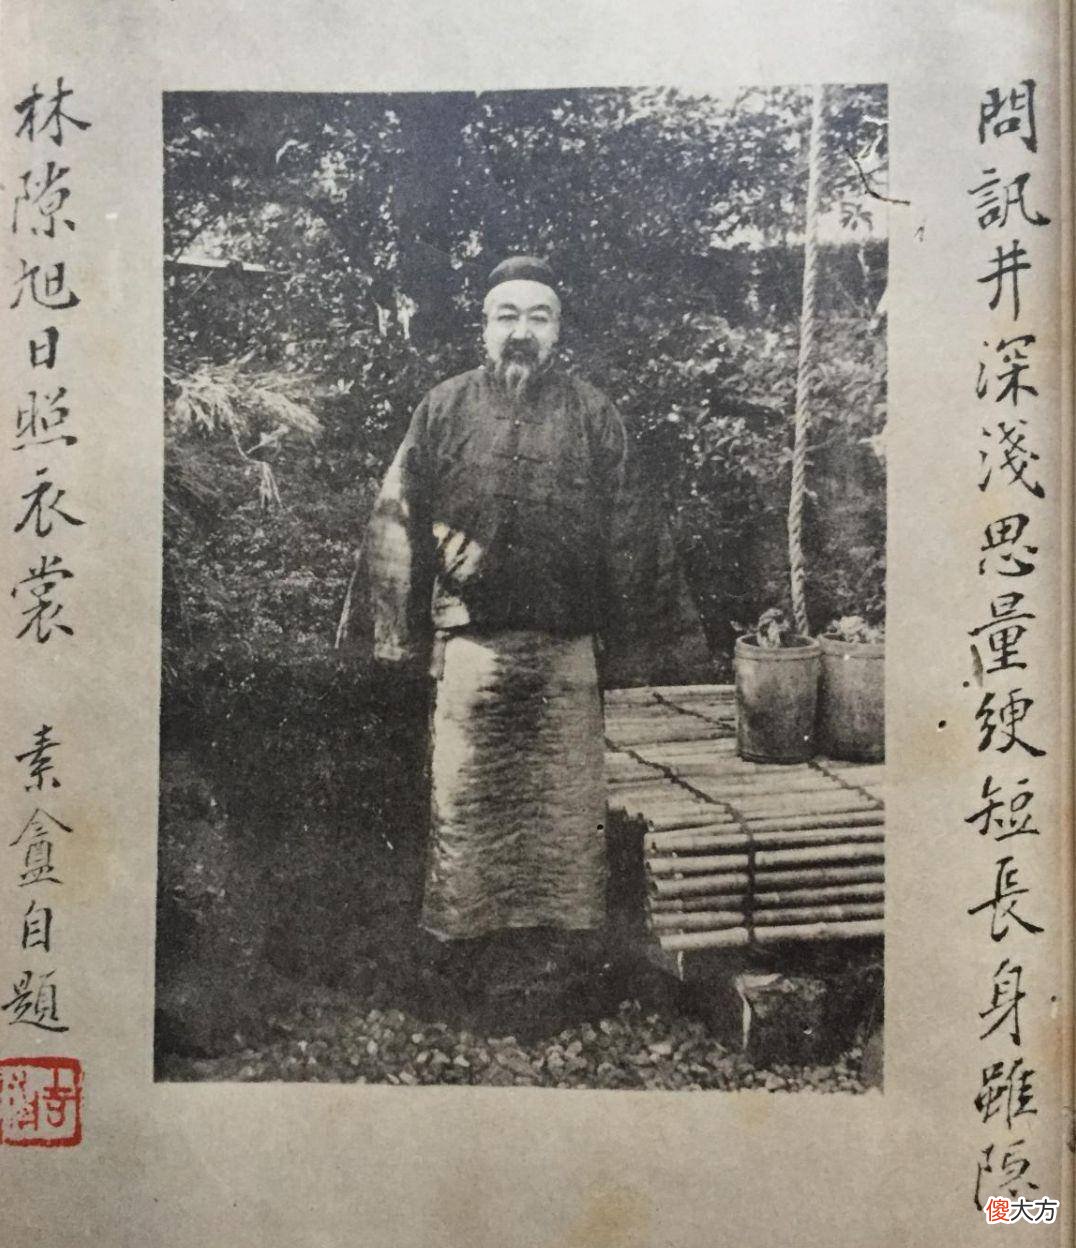 問訊井深淺思量綆短長身雖隱
林隙旭日照衣裳
素盦自題
傻大方